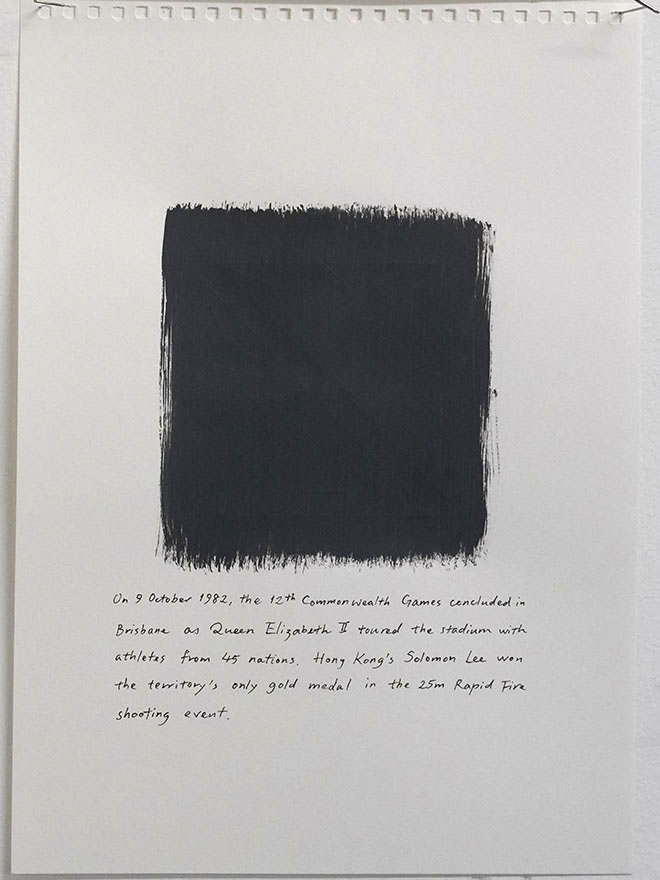 On 9 October 1982, the 12th Commonwealth Games concluded in
Brisbane as Queen Elizabeth II toured the stadium with
athletes from 45 nations. Hong Kong's Solomon Lee won
the territory's only gold medal in the 25m Rapid Fire
shooting event.